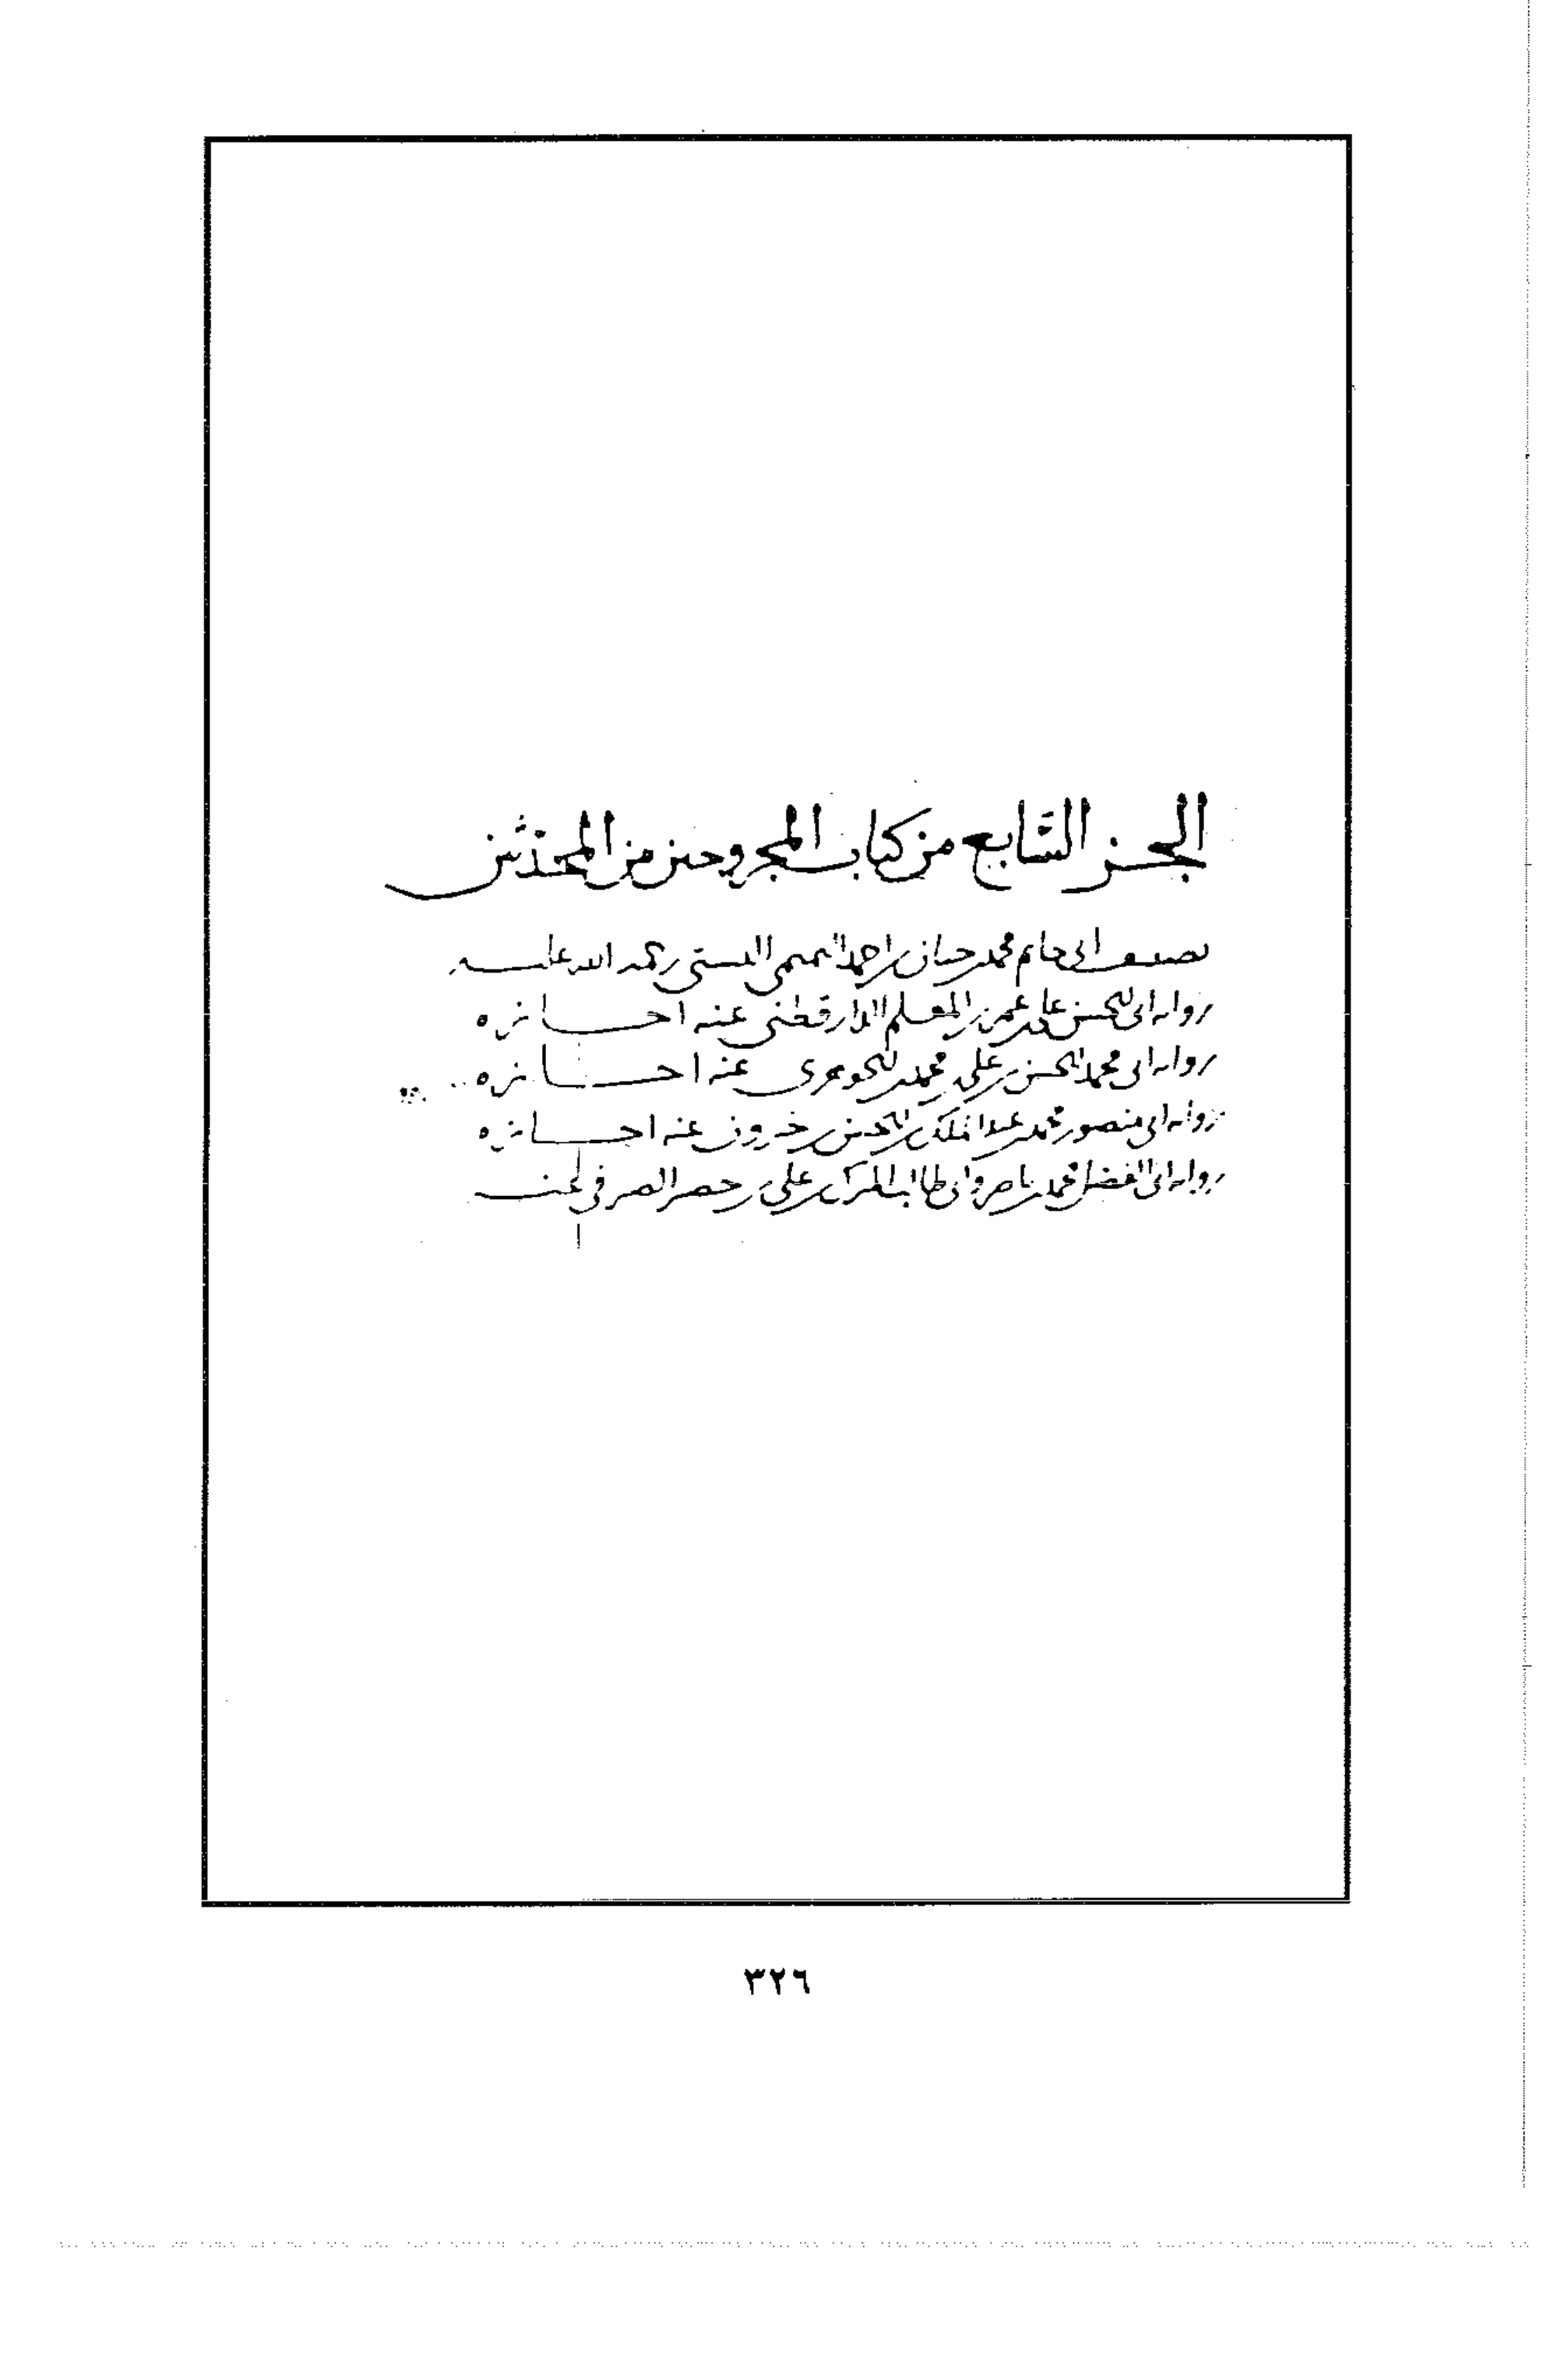 الجزء السابع من كتاب المجروحين من المحدثين
تصنيف ابي حاتم محمد بن حبان بن احمد التميمي البستي رحمة الله عليه
رواية ابي الحسن علي بن عمر بن المعلم الدارقطني عنه اجازه
رواية ابي محمد الحسن بن علي بن محمد الجوهري عنه اجازه
رواية ابي منصور محمد بن عبد الملك بن الحسن بن خيرون عنه اجازه
رواية ابي الفضل محمد بن ناصر وابي طالب المبارك بن علي بن خضير الصيرفي
٣٢٦